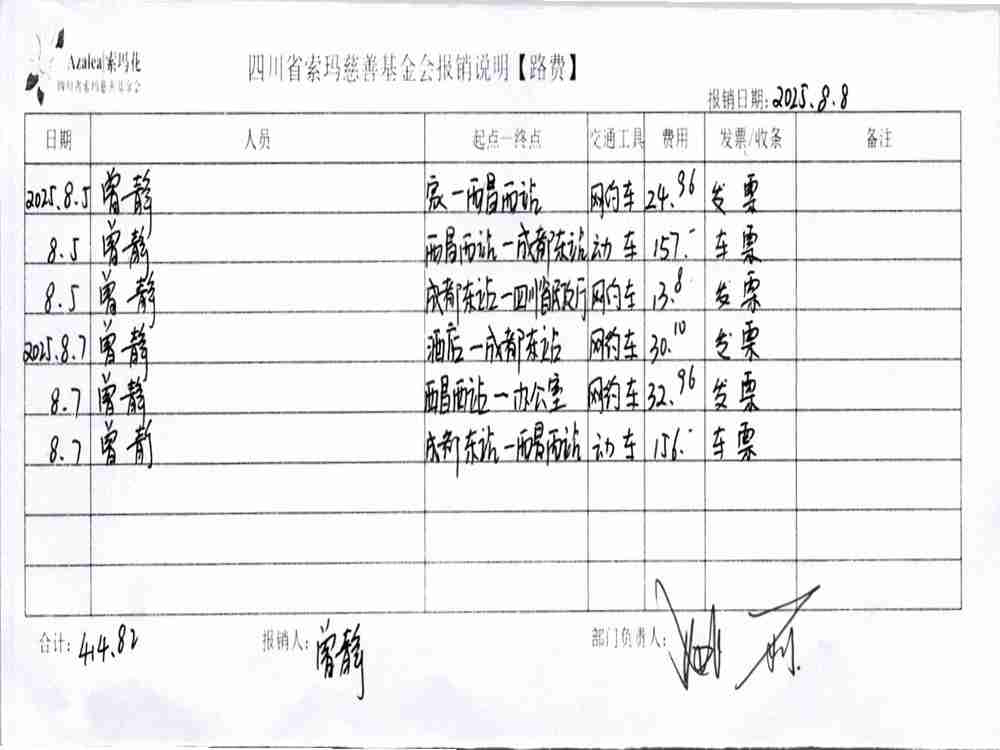 Azalea 索玛花
四川省索玛慈善基金会
四川省索玛慈善基金会报销说明【路费】
报销日期: 2025.8.8
日期 人员 起点一终点 交通工具 费用 发票/收条 备注
2025.8.5 曾静 家一西昌西站 网约车 24.96 发票
8.5 曾静 西昌西站一成都东站 动车 157.- 车票
8.5 曾静 成都东站一四川省民政厅 网约车 13.8 发票
2025.8.7 曾静 酒店一成都东站 网约车 30.10 发票
8.7 曾静 西昌西站一办公室 网约车 32.96 发票
8.7 曾静 成都东站一西昌西站 动车 156.- 车票
合计: 414.82 报销人: 曾静 部门负责人: